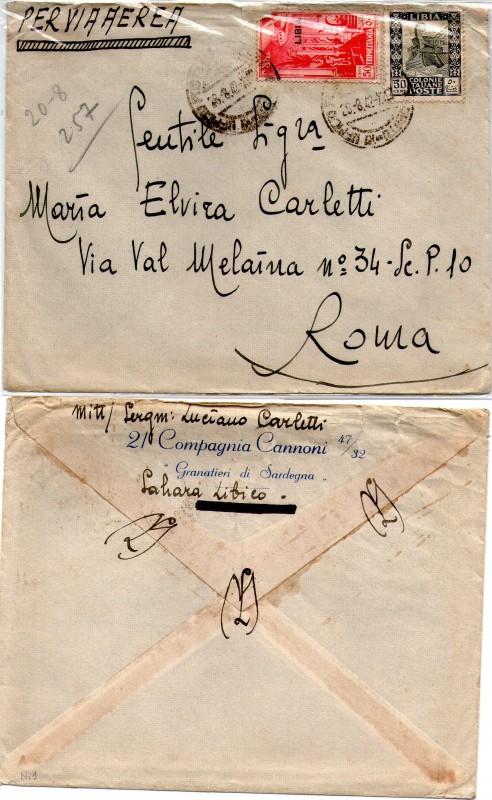 PER VIA AEREA
LIBIA
LIBIA
50
TRIPOLITANIA
30
COLONIE
ITALIANE
POSTE
20-8
257
Gentile Sig.ra
Maria Elvira Carletti
Via Val Melaina nº 34 - Sc. P. 10
Roma
Mitt/ Sergm: Luciano Carletti
21 Compagnia Cannoni 47/32
"Granatieri di Sardegna"
Sahara Libico -